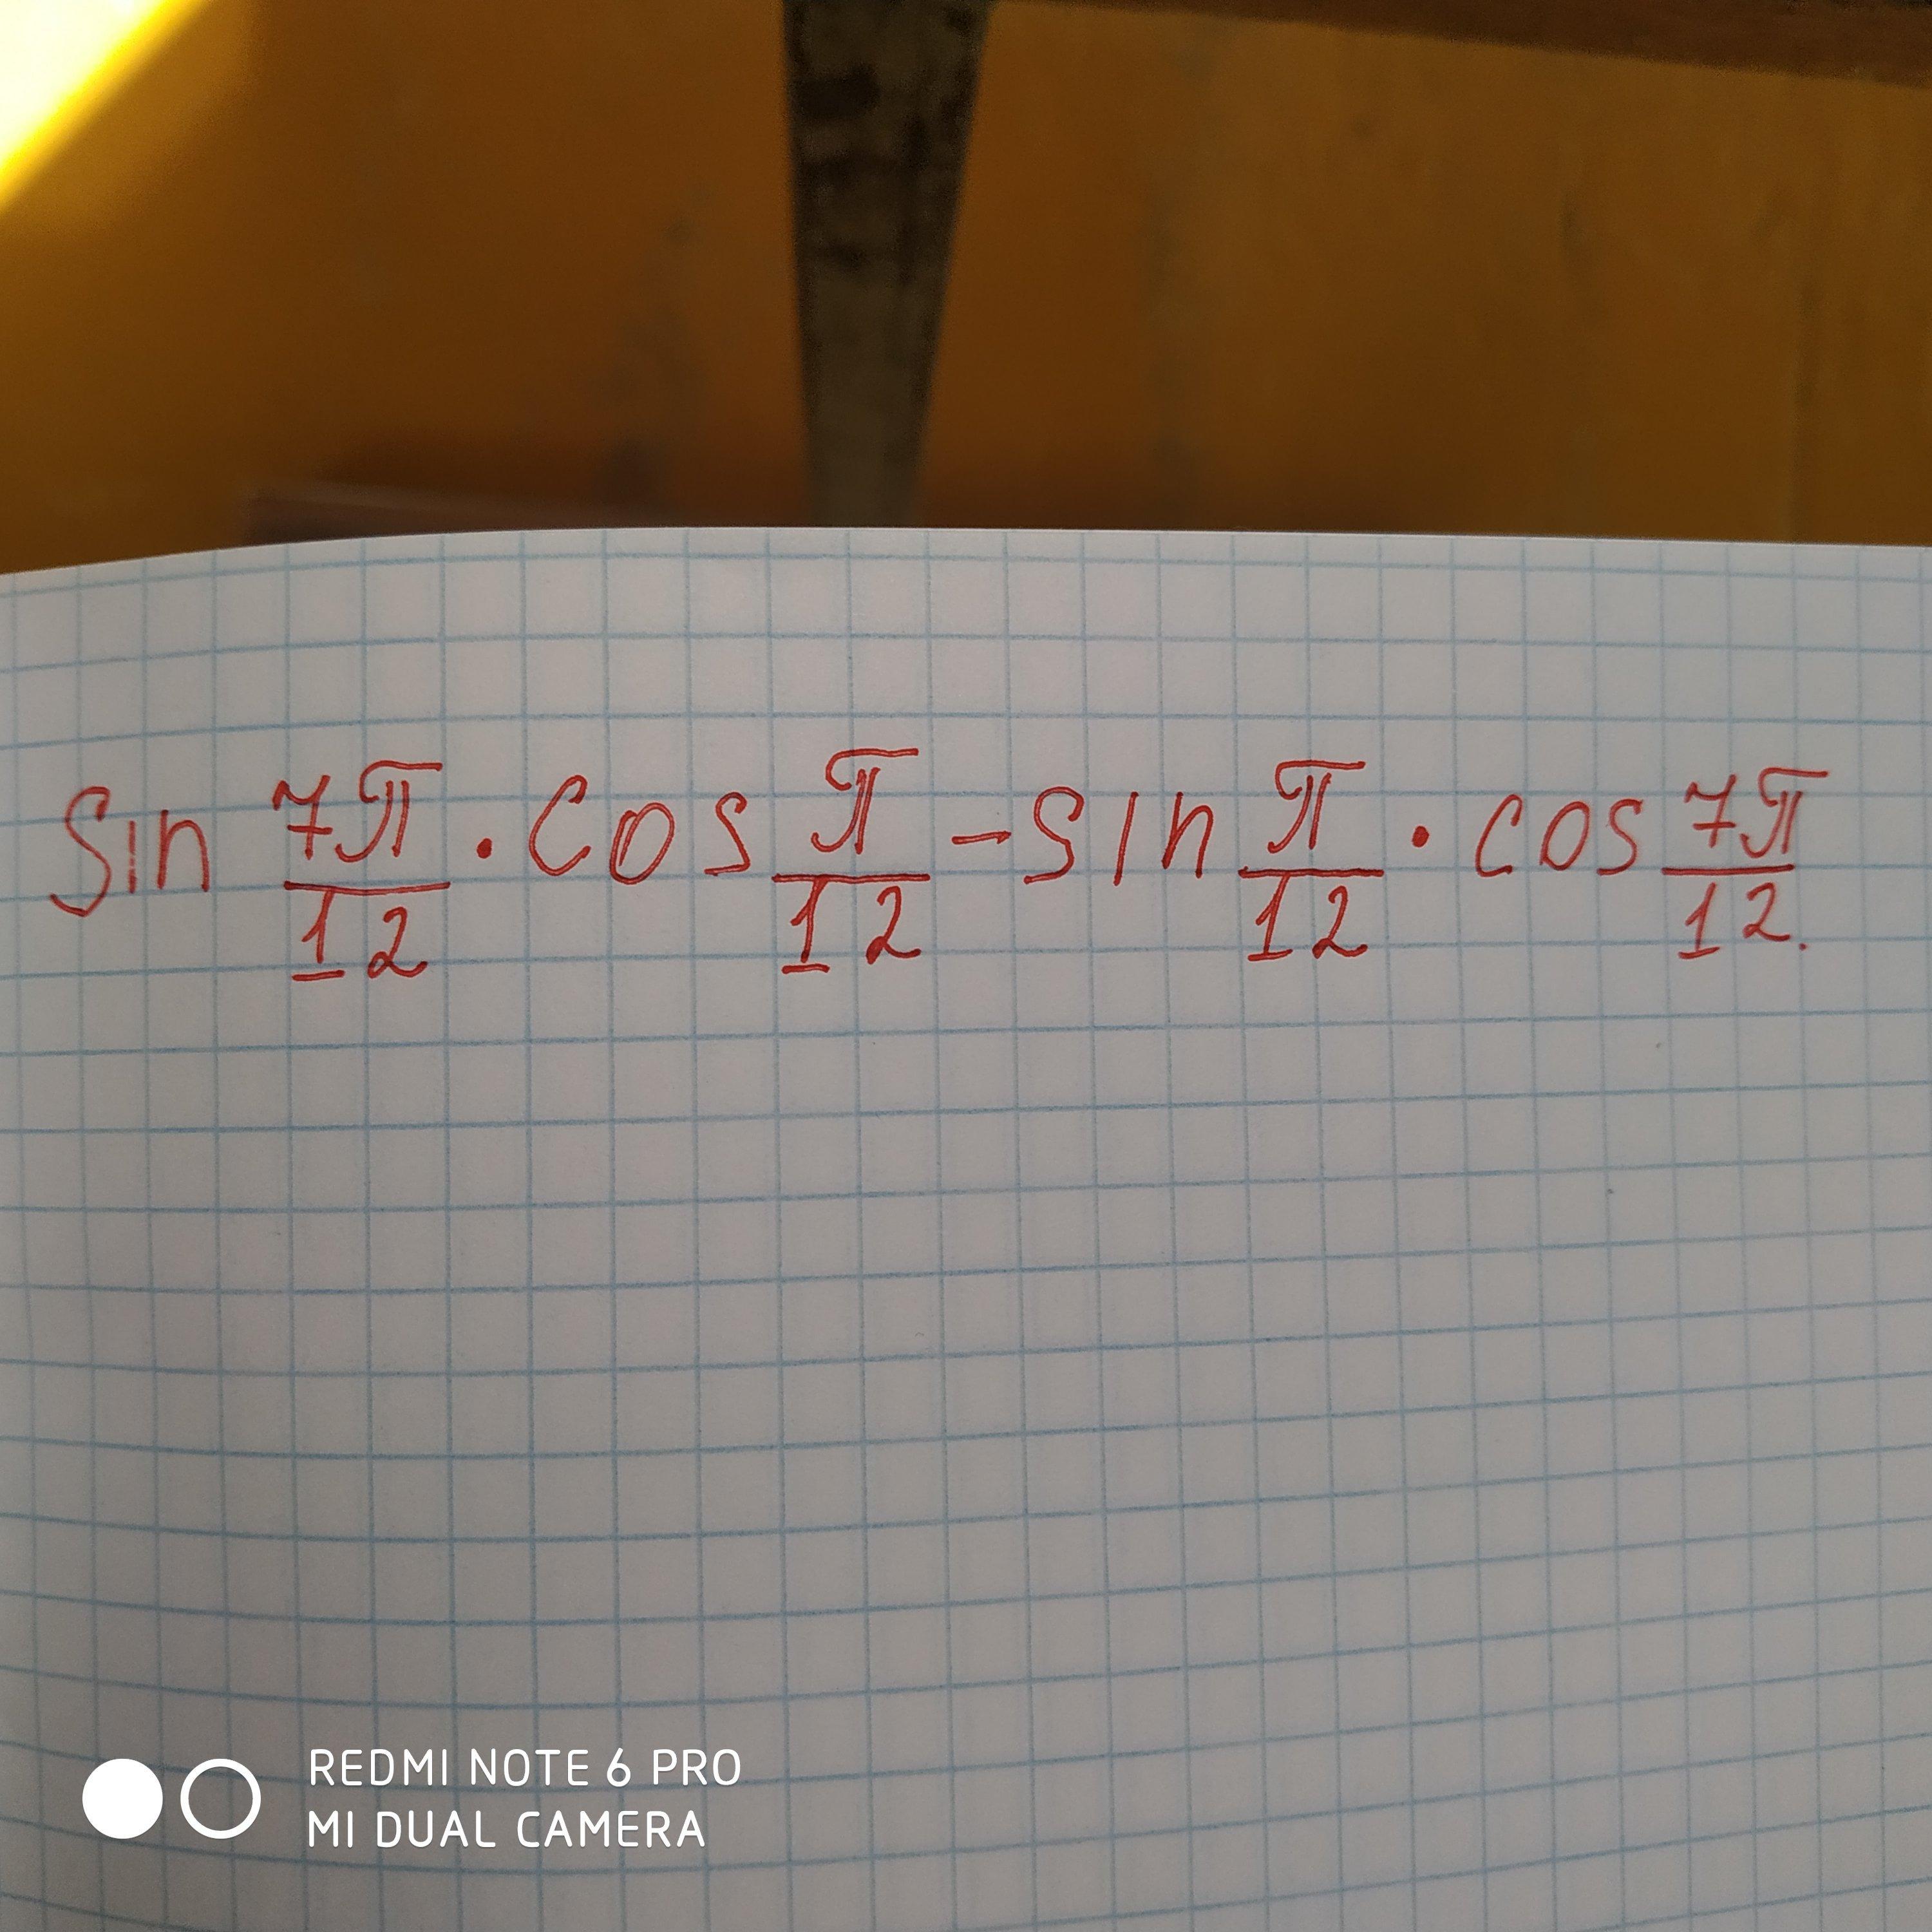 Sin 7π/12 · cos π/12 - sin π/12 · cos 7π/12.
REDMI NOTE 6 PRO
MI DUAL CAMERA